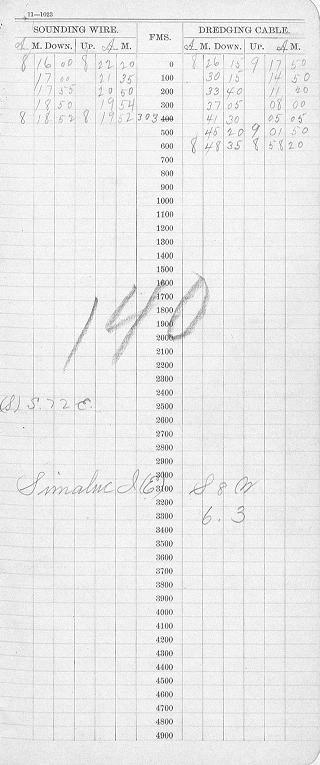 11—1023
SOUNDING WIRE. FMS. DREDGING CABLE.
A M. DOWN. UP. A M. A M. DOWN. UP. A M.
8 16 00 8 22 20 0 8 26 15 9 17 50
17 00 21 35 100 30 15 14 50
17 55 20 50 200 33 40 11 20
18 50 19 54 300 37 05 08 00
8 18 52 8 19 52 303 400 41 30 05 05
500 45 20 9 01 50
600 8 48 35 8 58 20
700
800
900
1000
1100
1200
1300
1400
1500
1600
1700
1800
1900
140
2000
2100
2200
2300
2400
(S) S. 72 E. 2500
2600
2700
2800
2900
3000
Simaluc I (E) 3100 S 8 W
3200
3300 6.3
3400
3500
3600
3700
3800
3900
4000
4100
4200
4300
4400
4500
4600
4700
4800
4900